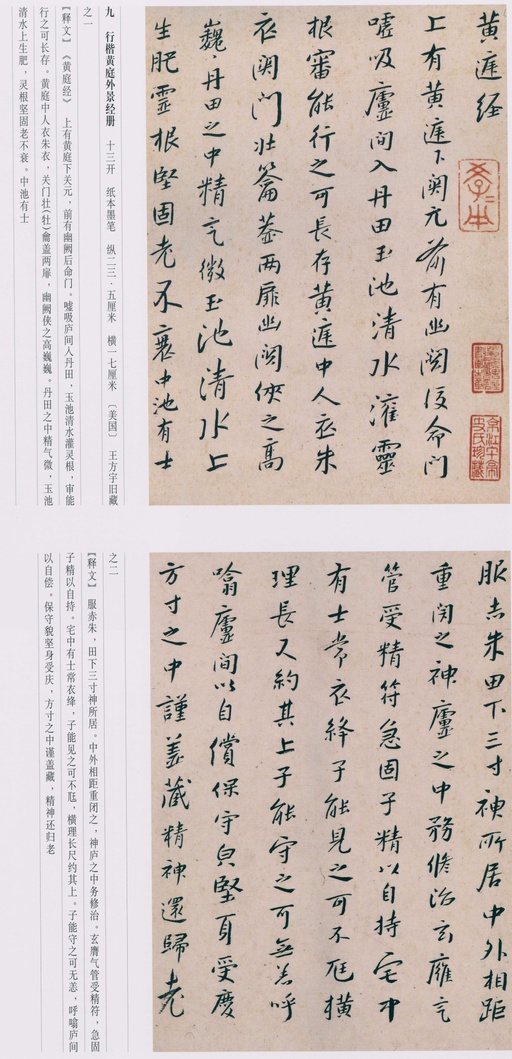 黄庭经
上有黄庭下関元前有幽闕後命门
嘘吸廬间入丹田玉池清水灌靈
根審能行之可長存黄庭中人衣朱
衣関门壮籥蓋两扉幽闕俠之高
巍〻丹田之中精气微玉池清水上
生肥靈根堅固老不衰中池有士
九 行楷黄庭外景经册 十三开 纸本墨笔 纵二三·五厘米 横一七厘米 〔美国〕 王方宇旧藏
之一
【释文】 《黄庭经》 上有黄庭下关元，前有幽阙后命门。嘘吸庐间入丹田，玉池清水灌灵根，审能
行之可长存。黄庭中人衣朱衣，关门壮(牡)籥盖两扉，幽阙侠之高巍巍。丹田之中精气微，玉池
清水上生肥，灵根坚固老不衰。中池有士
服赤朱田下三寸神所居中外相距
重闭之神廬之中務修治玄膺气
管受精符急固子精以自持宅中
有士常衣絳子能見之可不尫横
理長尺約其上子能守之可無恙呼
噏廬间以自償保守皃堅身受慶
方寸之中謹盖藏精神還歸老
之二
【释文】 服赤朱，田下三寸神所居。中外相距重闭之，神庐之中务修治。玄膺气管受精符，急固
子精以自持。宅中有士常衣绛，子能见之可不尫，横理长尺约其上。子能守之可无恙，呼噏庐间
以自偿。保守貌坚身受庆，方寸之中谨盖藏，精神还归老